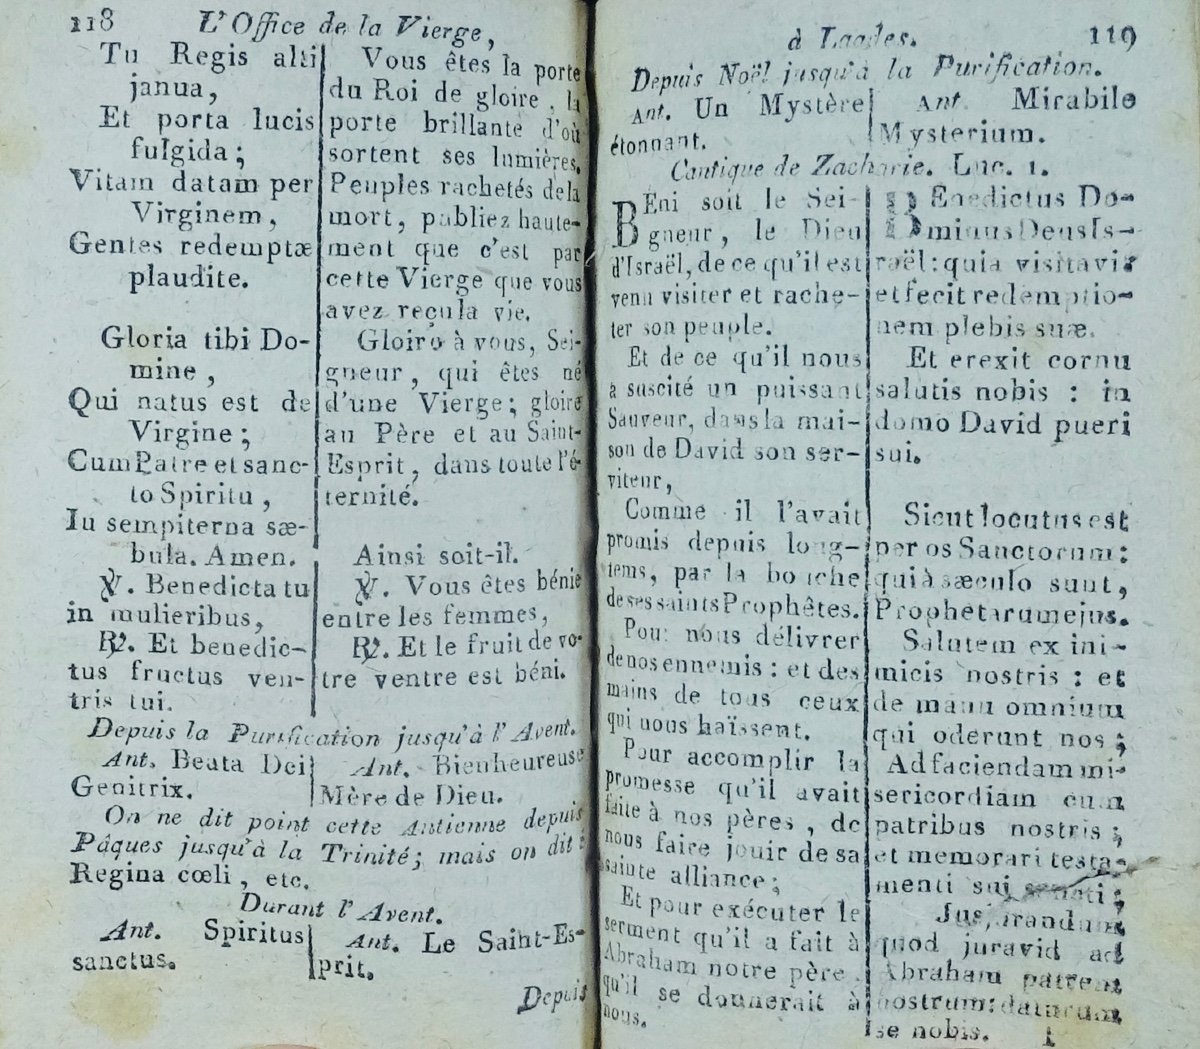 118 L'Office de la Vierge,
Tu Regis alti
janua,
Et porta lucis
fulgida ;
Vitam datam per
Virginem,
Gentes redemptæ
plaudite.
Gloria tibi Do-
mine,
Qui natus est de
Virgine ;
Cum Patre et sanc-
to Spiritu,
In sempiterna sæ-
bula. Amen.
℣. Benedicta tu
in mulieribus,
℟. Et benedic-
tus fructus ven-
tris tui.
Vous êtes la porte
du Roi de gloire, la
porte brillante d'où
sortent ses lumières.
Peuples rachetés de la
mort, publiez haute-
ment que c'est par
cette Vierge que vous
avez reçu la vie.
Gloire à vous, Sei-
gneur, qui êtes né
d'une Vierge ; gloire
au Père et au Saint-
Esprit, dans toute l'é-
ternité.
Ainsi soit-il.
℣. Vous êtes bénie
entre les femmes,
℟. Et le fruit de vo-
tre ventre est béni.
Depuis la Purification jusqu'à l'Avent.
Ant. Beata Dei
Genitrix.
Ant. Bienheureuse
Mère de Dieu.
On ne dit point cette Antienne depuis
Pâques jusqu'à la Trinité ; mais on dit :
Regina cœli, etc.
Durant l'Avent.
Ant. Spiritus
sanctus.
Ant. Le Saint-Es-
prit.
Depuis
à Laudes. 119
Depuis Noël jusqu'à la Purification.
Ant. Un Mystère
étonnant.
Ant. Mirabile
Mysterium.
Cantique de Zacharie. Luc. 1.
BEni soit le Sei-
gneur, le Dieu
d'Israël, de ce qu'il est
venu visiter et rache-
ter son peuple.
Et de ce qu'il nous
a suscité un puissant
Sauveur, dans la mai-
son de David son ser-
viteur,
Comme il l'avait
promis depuis long-
tems, par la bouche
de ses saints Prophêtes.
Pour nous délivrer
de nos ennemis : et des
mains de tous ceux
qui nous haïssent.
Pour accomplir la
promesse qu'il avait
faite à nos pères, de
nous faire jouir de sa
sainte alliance ;
Et pour exécuter le
serment qu'il a fait à
Abraham notre père,
qu'il se donnerait à
nous.
BEnedictus Do-
minus Deus Is-
raël : quia visitavit
et fecit redemptio-
nem plebis suæ.
Et erexit cornu
salutis nobis : in
domo David pueri
sui.
Sicut locutus est
per os Sanctorum :
qui à sæculo sunt,
Prophetarum ejus.
Salutem ex ini-
micis nostris : et
de manu omnium
qui oderunt nos ;
Ad faciendam mi-
sericordiam cum
patribus nostris ;
et memorari testa-
menti sui sancti ;
Jusjurandum,
quod juravid ad
Abraham patrem
nostrum : daturum
se nobis.